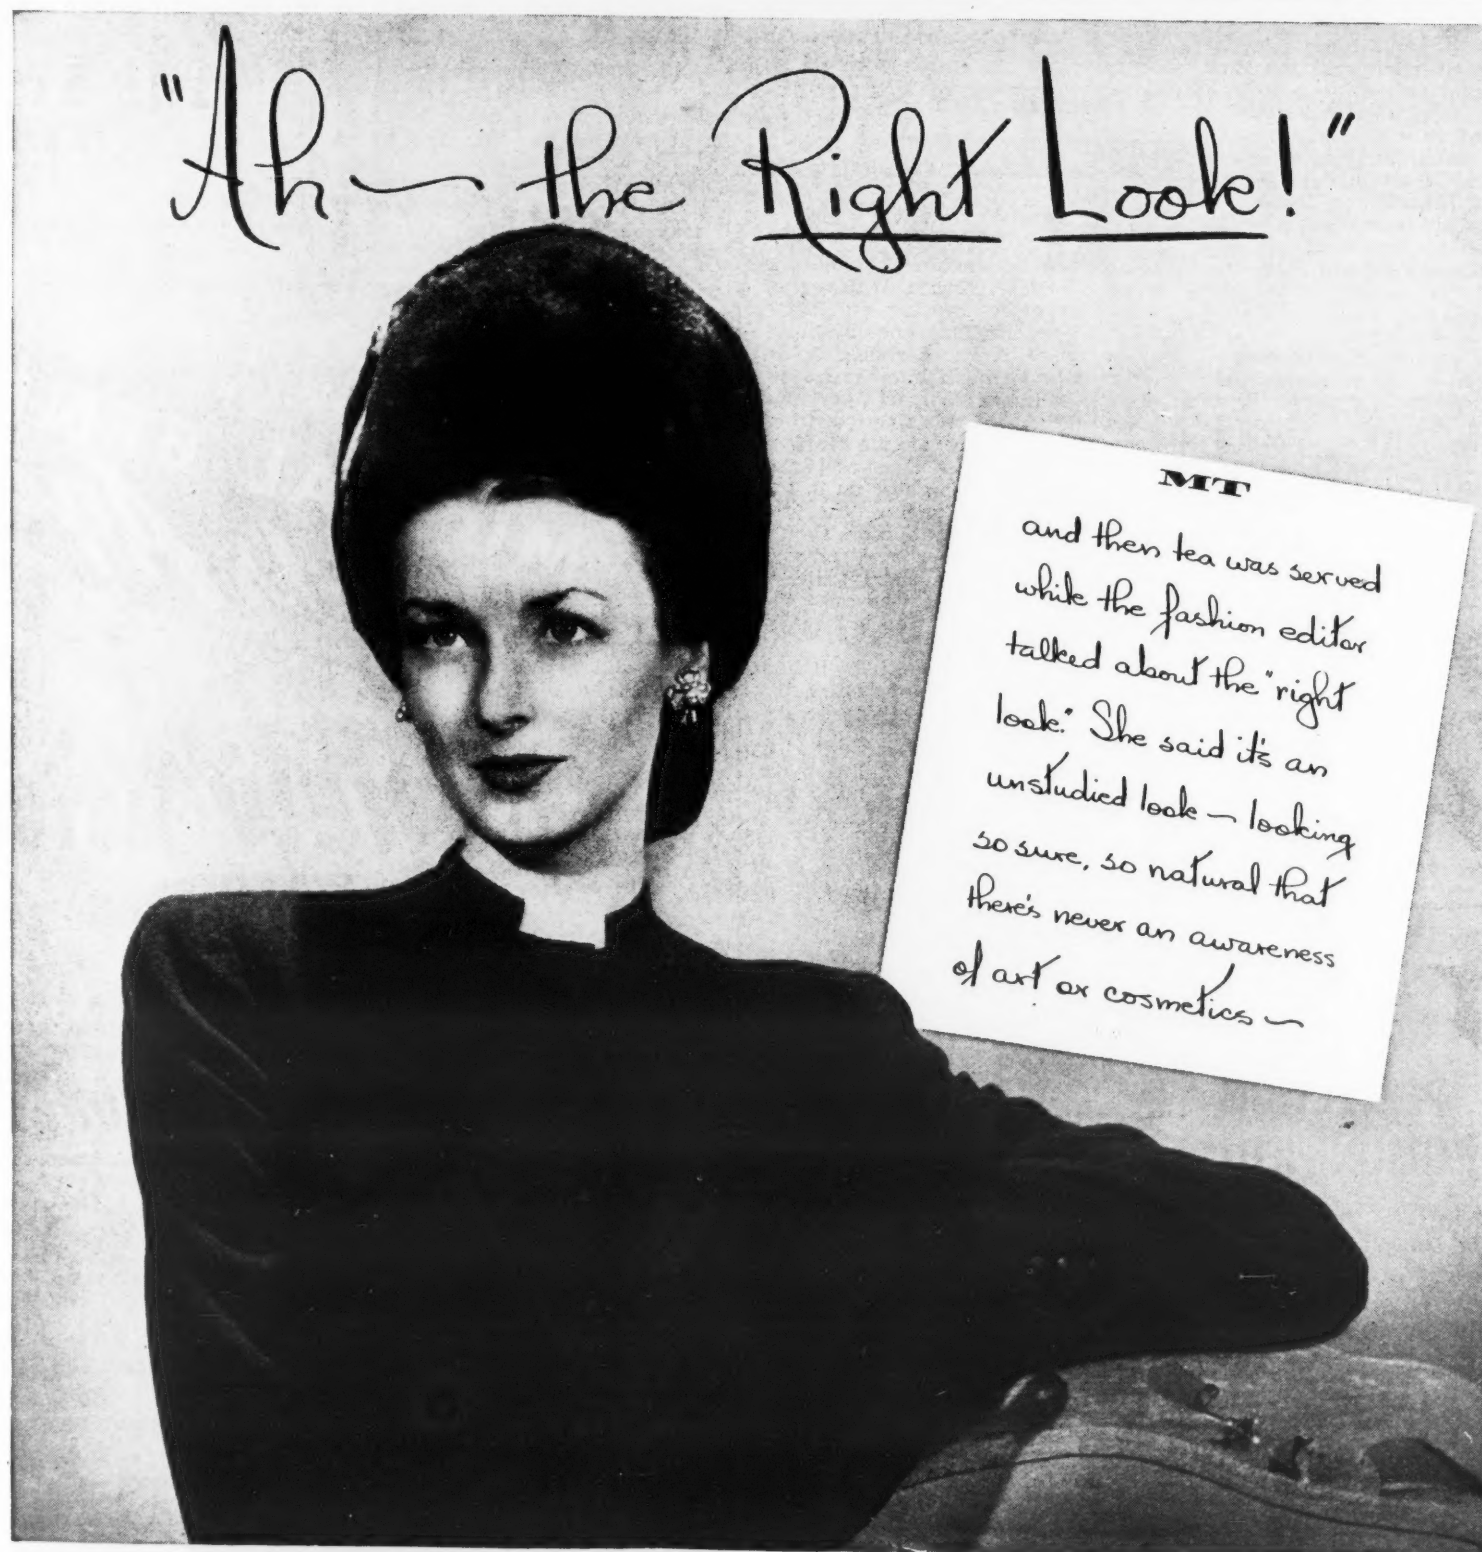 "Ah — the Right Look!"
MT
and then tea was served
while the fashion editor
talked about the "right
look." She said it's an
unstudied look — looking
so sure, so natural that
there's never an awareness
of art or cosmetics —